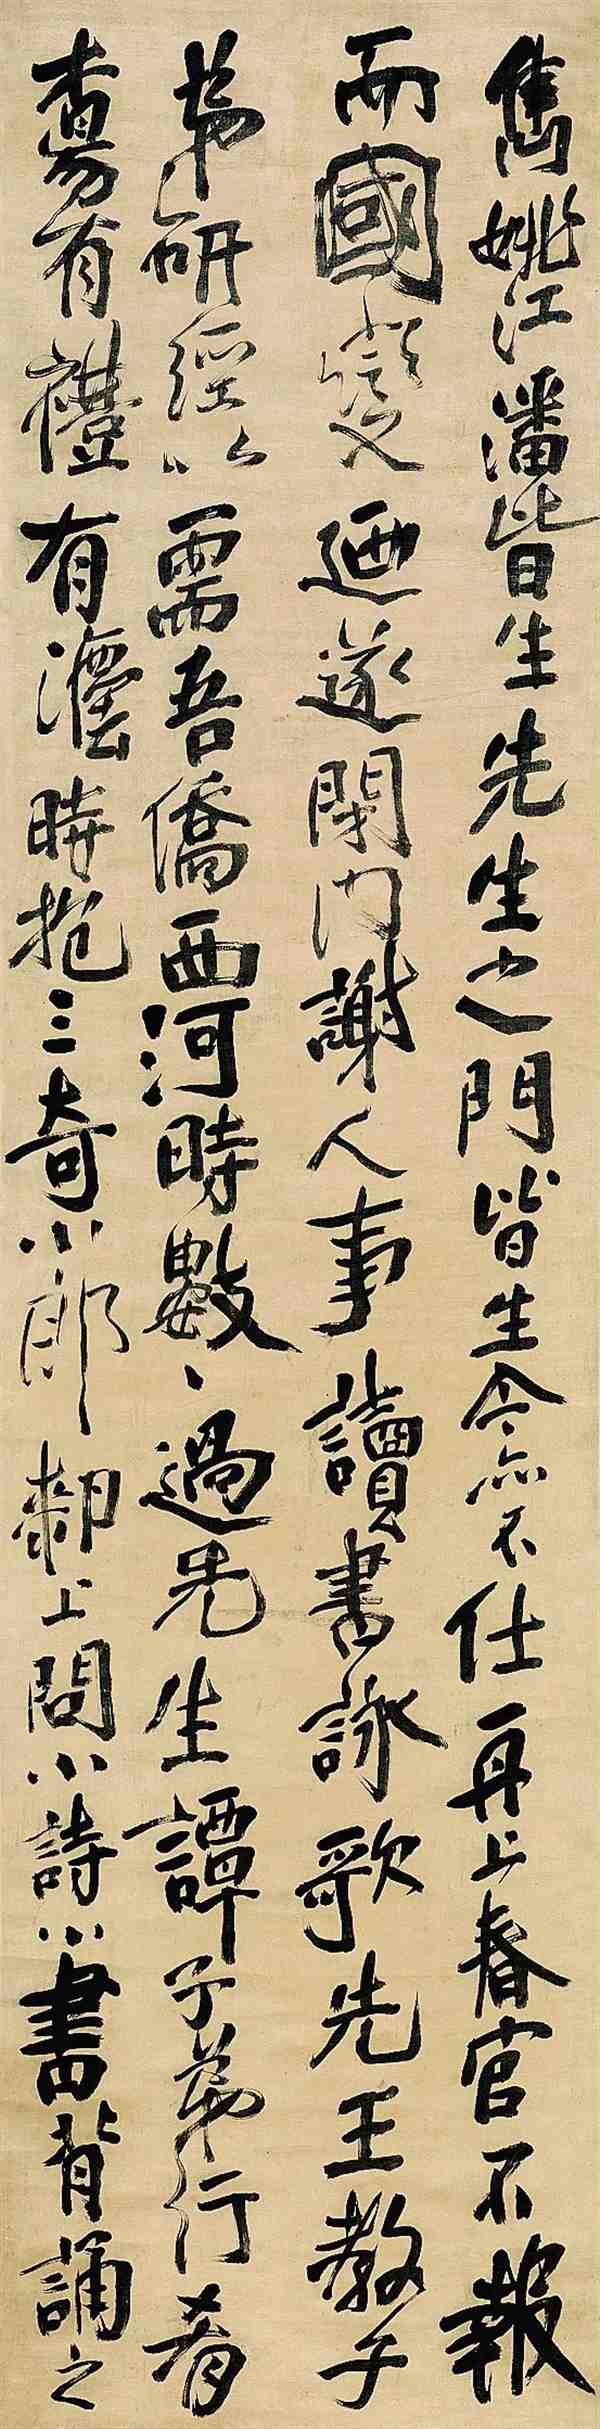 雋姚江潘皆生先生之門皆生今亦不仕再上春官不報
而國變廼遂閉門謝人事讀書詠歌先王教子
弟研經以需吾儕西河時數〻過先生譚子弟行肴
有禮有灋時抱三奇小郎膝上問小詩小書背誦之